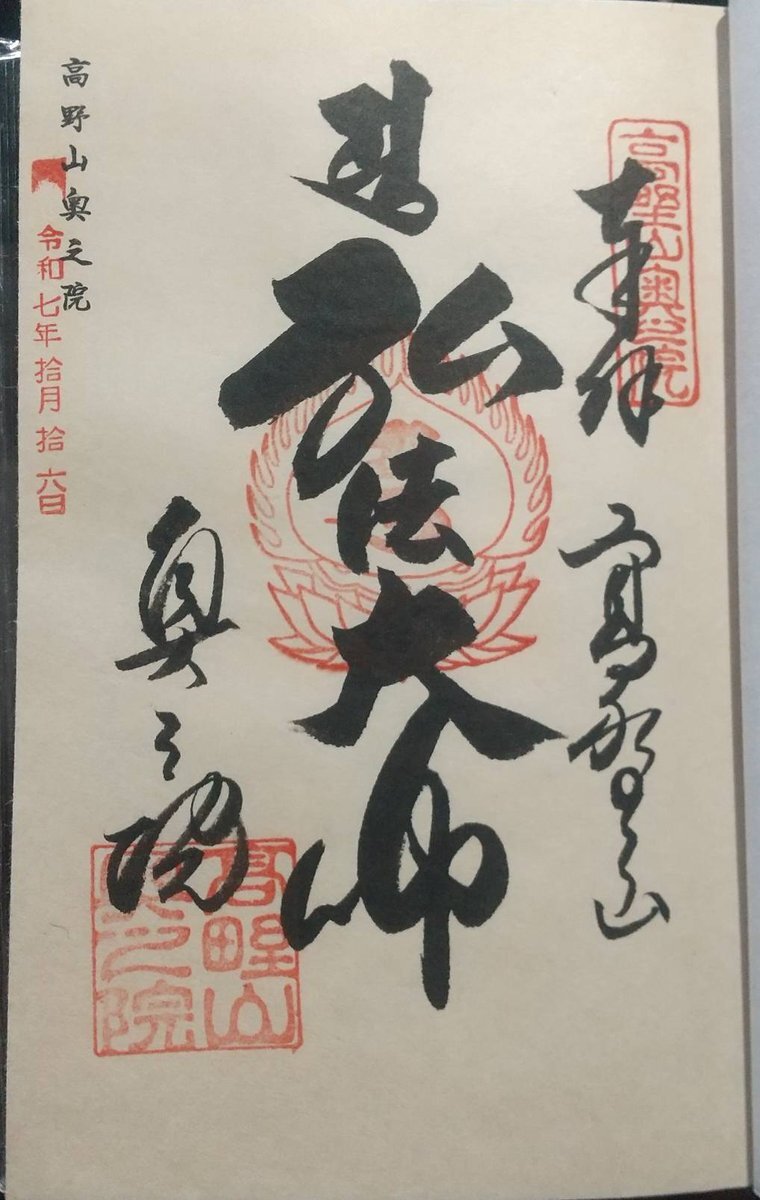 奉拝
高野山
高野山奥之院
弘法大師
奥之院
高野山
奥之院
高野山奥之院
令和七年拾月拾六日